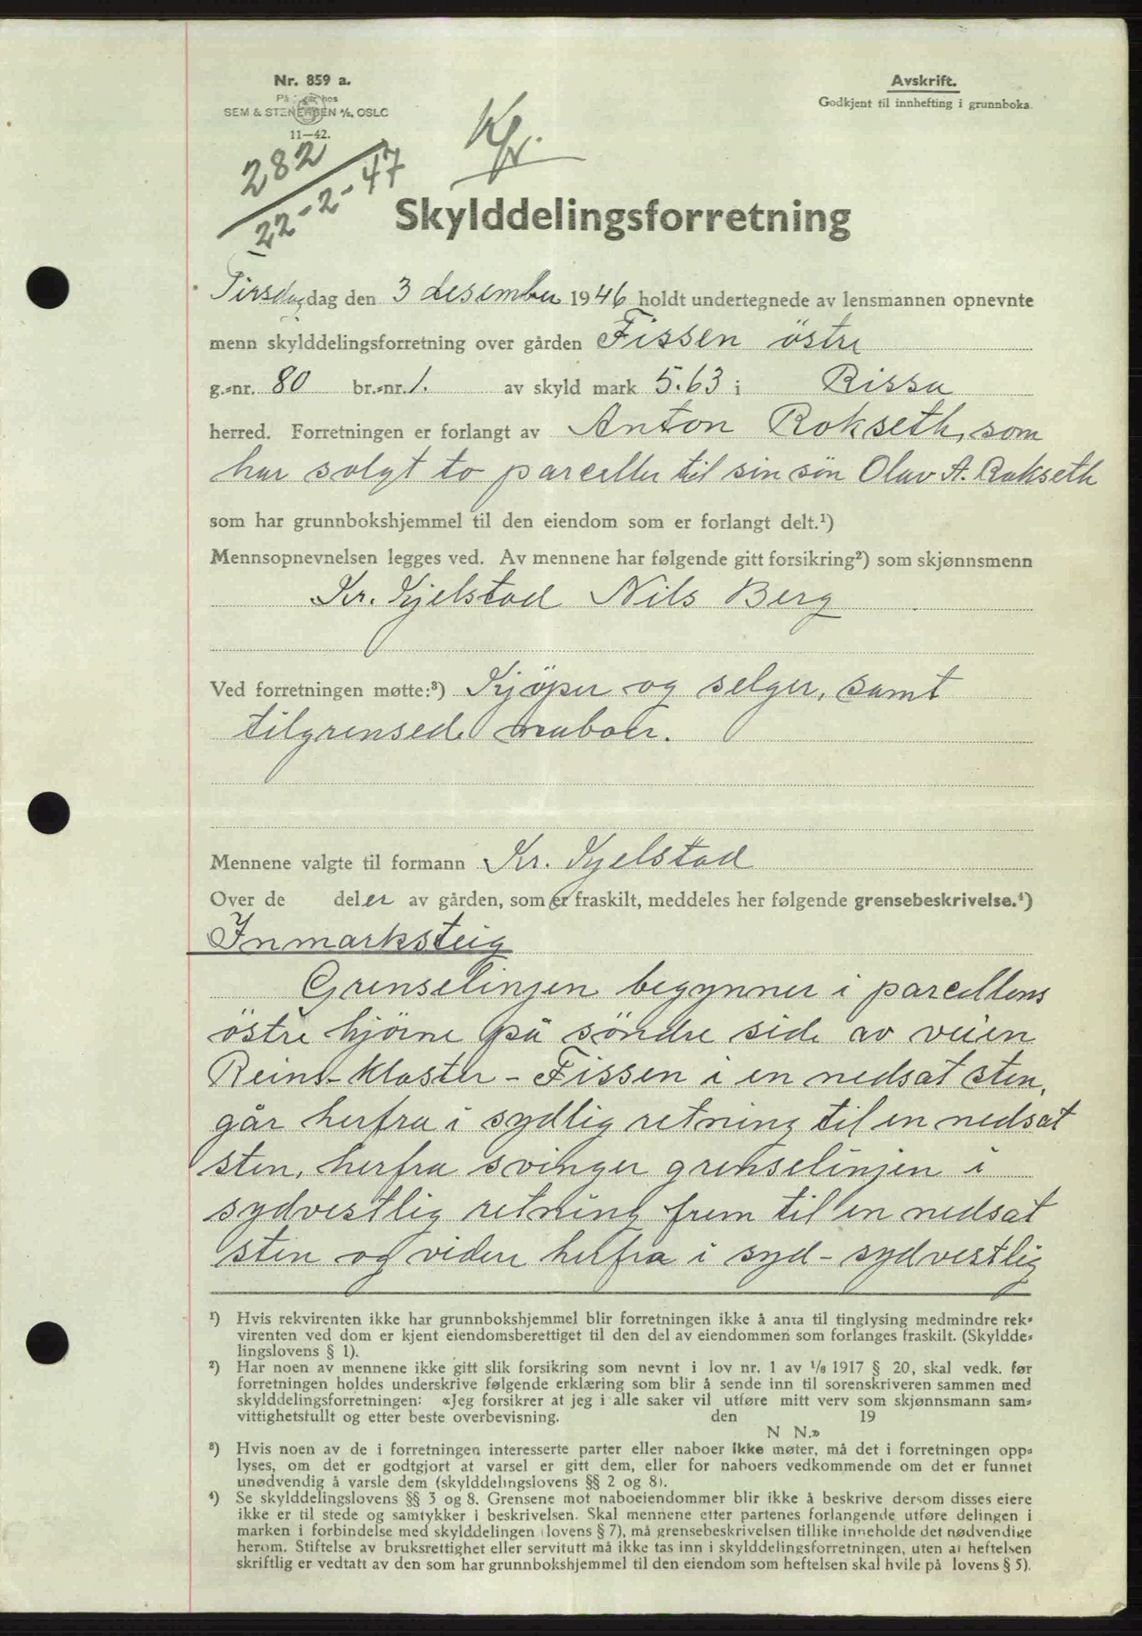 Nr. 859 a.
På lager hos
SEM & STENERSEN A/S, OSLO
11—42.
Avskrift.
Godkjent til innhefting i grunnboka.
282
22-2-47
Kfr.
Skylddelingsforretning
Tirsdag dag den 3 desember 1946 holdt undertegnede av lensmannen opnevnte
menn skylddelingsforretning over gården Fissen östre
g.-nr. 80 br.-nr. 1. av skyld mark 5.63 i Rissa
herred. Forretningen er forlangt av Anton Rokseth, som
har solgt to parceller til sin sön Olav A. Rokseth
som har grunnbokshjemmel til den eiendom som er forlangt delt.¹)
Mennsopnevnelsen legges ved. Av mennene har følgende gitt forsikring²) som skjønnsmenn
Kr. Kjelstad Nils Berg
Ved forretningen møtte:³) Kjöper og selger, samt
tilgrensede naboer.
Mennene valgte til formann Kr. Kjelstad
Over de deler av gården, som er fraskilt, meddeles her følgende grensebeskrivelse.⁴)
Inmarksteig
Grenselinjen begynner i parcellens
östre hjörne på söndre side av veien
Reins-Kloster - Fissen i en nedsat sten,
går herfra i sydlig retning til en nedsat
sten, herfra svinger grenselinjen i
sydvestlig retning frem til en nedsat
sten og videre herfra i syd-sydvestlig
¹) Hvis rekvirenten ikke har grunnbokshjemmel blir forretningen ikke å anta til tinglysing medmindre rek-
virenten ved dom er kjent eiendomsberettiget til den del av eiendommen som forlanges fraskilt. (Skyldde-
lingslovens § 1).
²) Har noen av mennene ikke gitt slik forsikring som nevnt i lov nr. 1 av 1/6 1917 § 20, skal vedk. før
forretningen holdes underskrive følgende erklæring som blir å sende inn til sorenskriveren sammen med
skylddelingsforretningen: «Jeg forsikrer at jeg i alle saker vil utføre mitt verv som skjønnsmann sam-
vittighetsfullt og etter beste overbevisning. den 19
N N.»
³) Hvis noen av de i forretningen interesserte parter eller naboer ikke møter, må det i forretningen opp-
lyses, om det er godtgjort at varsel er gitt dem, eller for naboers vedkommende om det er funnet
unødvendig å varsle dem (skylddelingslovens §§ 2 og 8).
⁴) Se skylddelingslovens §§ 3 og 8. Grensene mot naboeiendommer blir ikke å beskrive dersom disses eiere
ikke er til stede og samtykker i beskrivelsen. Skal mennene etter partenes forlangende utføre delingen i
marken i forbindelse med skylddelingen (lovens § 7), må grensebeskrivelsen tillike inneholde det nødvendige
herom. Stiftelse av bruksrettighet eller servitutt må ikke tas inn i skylddelingsforretningen, uten at heftelsen
skriftlig er vedtatt av den som har grunnbokshjemmel til den eiendom som heftelsen skal hvile på lovens § 5).